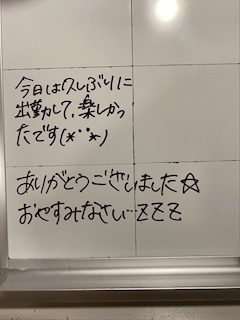 今日は久しぶりに
出勤して、楽しかっ
たです(*¨*)
ありがとうございました☆
おやすみなさい…ZZZ